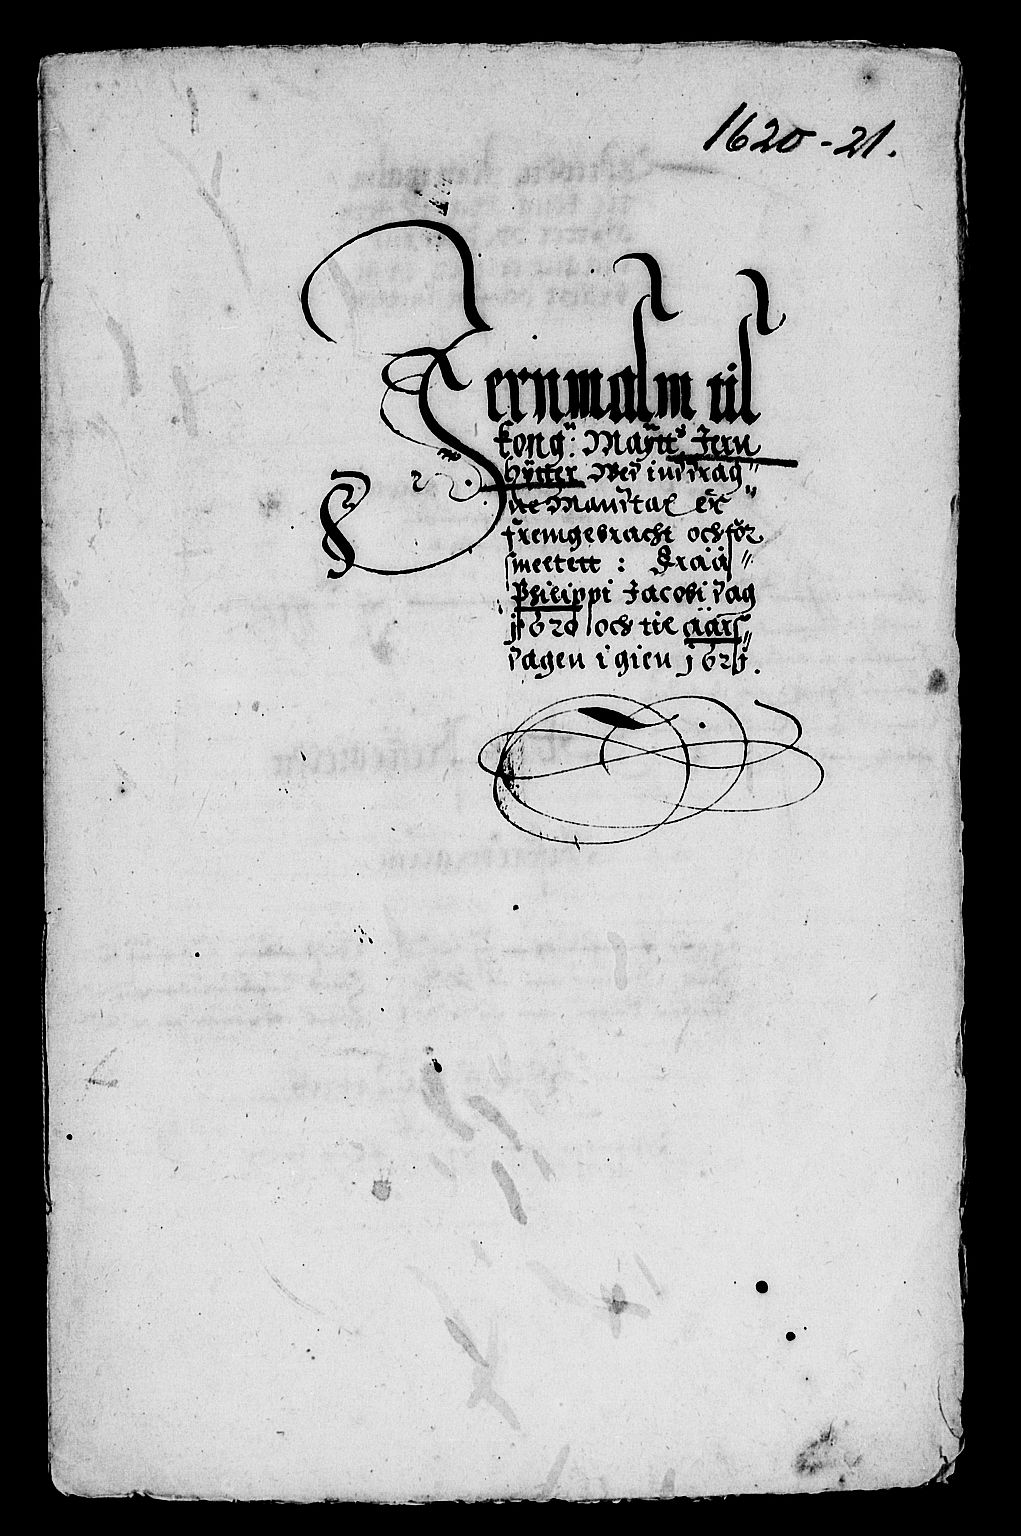 1620-21.
Jernmalm til
kong: Maytts Jern
hÿtter Wed inddrag=
ne Mandtal er
fremgebracht och för
smeltett : Fraa
Philippi Jacobi dag
j620 och til aars
dagen igien j62j.